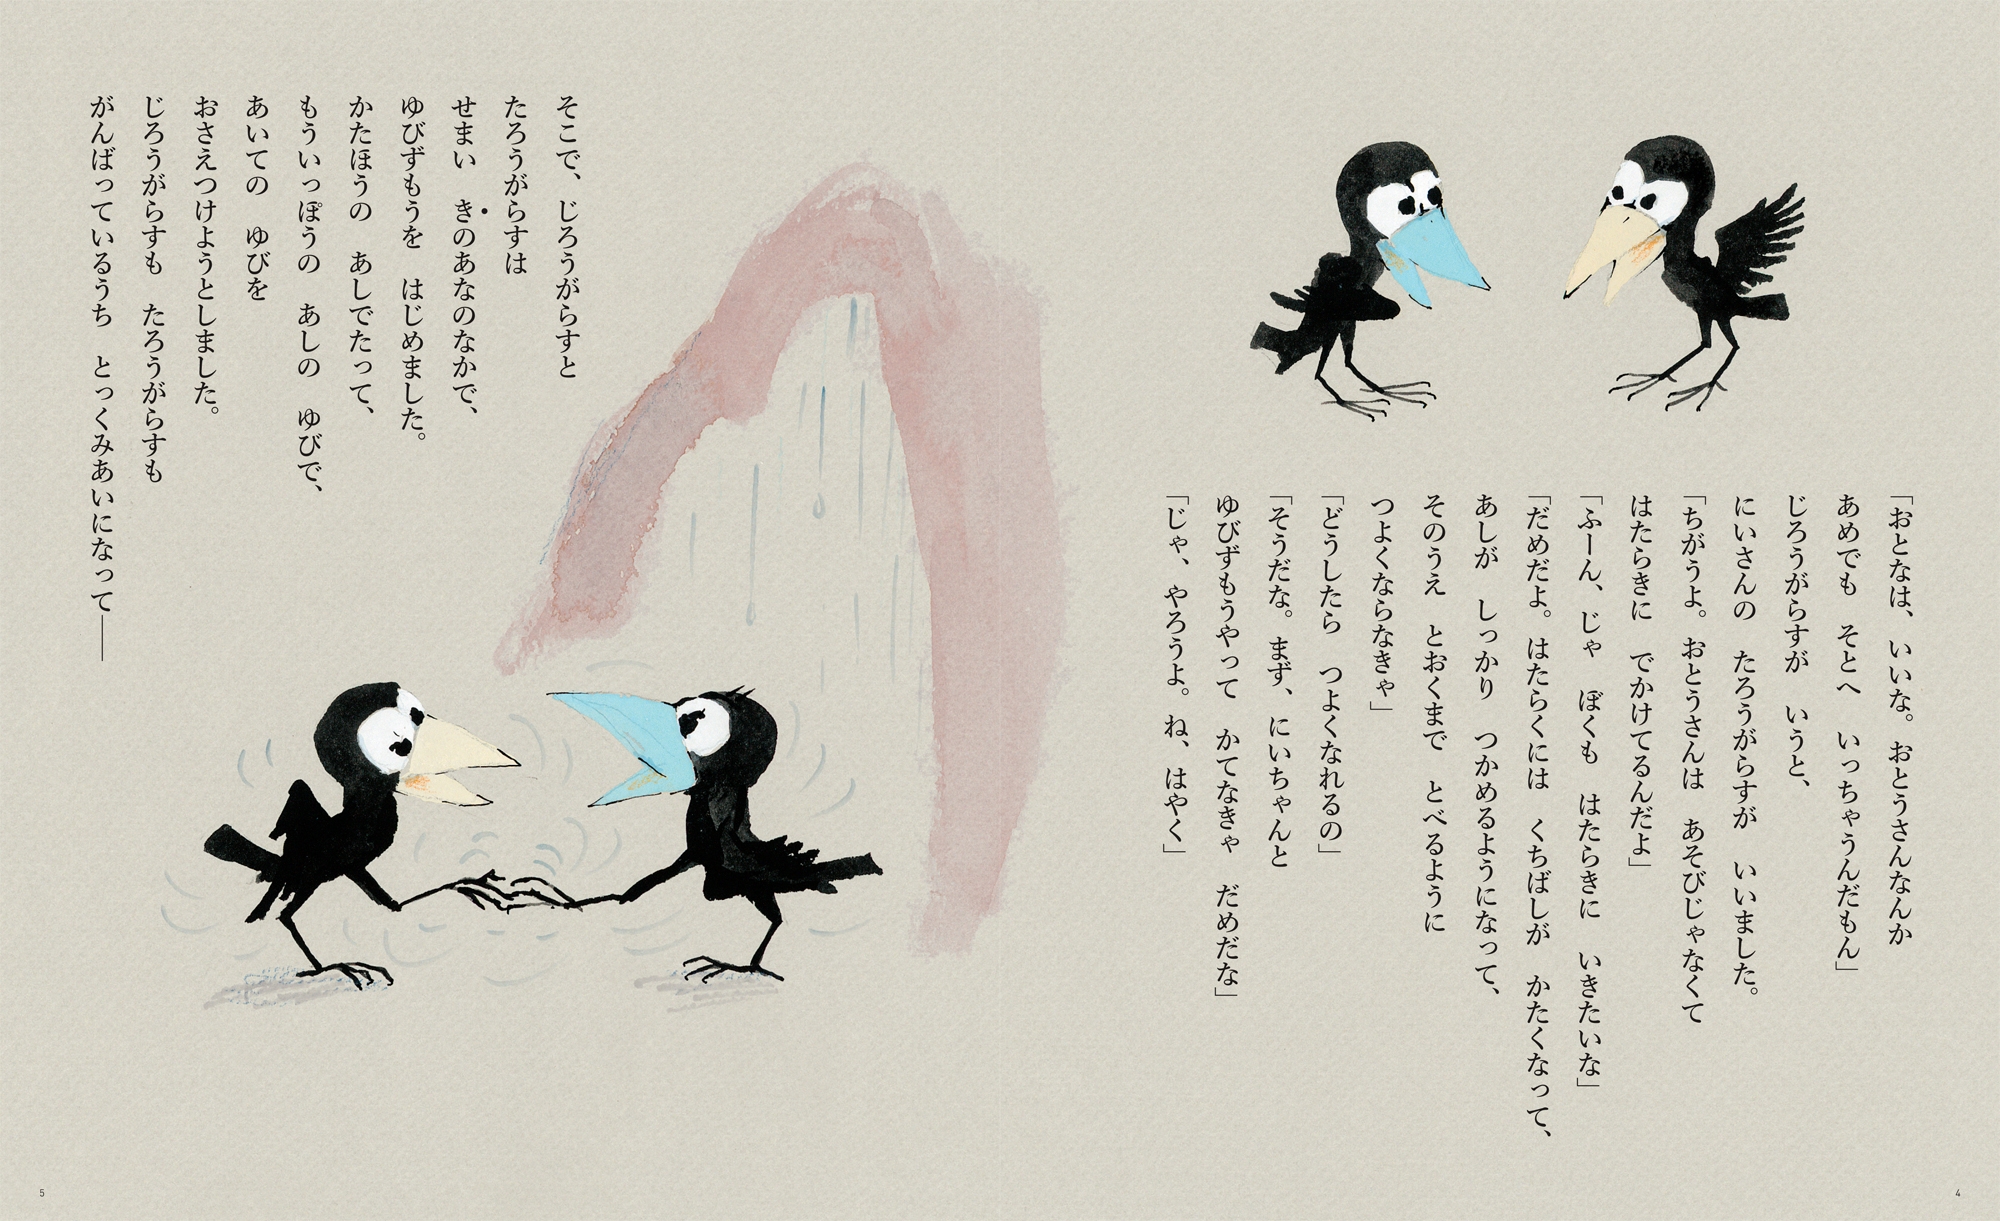 「おとなは、いいな。おとうさんなんか
あめでも　そとへ　いっちゃうんだもん」
じろうがらすが　いうと、
にいさんの　たろうがらすが　いいました。
「ちがうよ。おとうさんは　あそびじゃなくて
はたらきに　でかけてるんだよ」
「ふーん、じゃ　ぼくも　はたらきに　いきたいな」
「だめだよ。はたらくには　くちばしが　かたくなって、
あしが　しっかり　つかめるようになって、
そのうえ　とおくまで　とべるように
つよくならなきゃ」
「どうしたら　つよくなれるの」
「そうだな。まず、にいちゃんと
ゆびずもうやって　かてなきゃ　だめだな」
「じゃ、やろうよ。ね、はやく」
4
そこで、じろうがらすと
たろうがらすは
せまい　きのあなのなかで、
ゆびずもうを　はじめました。
かたほうの　あしでたって、
もういっぽうの　あしの　ゆびで、
あいての　ゆびを
おさえつけようとしました。
じろうがらすも　たろうがらすも
がんばっているうち　とっくみあいになって――
5